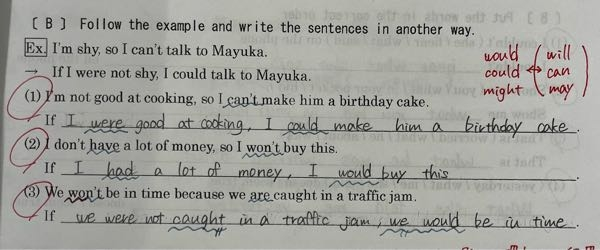 [ B ] Follow the example and write the sentences in another way.
Ex. I'm shy, so I can't talk to Mayuka.
→ If I were not shy, I could talk to Mayuka.
would
could ↔
might
will
can
may
(1) I'm not good at cooking, so I can't make him a birthday cake.
If I were good at cooking, I could make him a birthday cake.
(2) I don't have a lot of money, so I won't buy this.
If I had a lot of money, I would buy this.
(3) We won't be in time because we are caught in a traffic jam.
If we were not caught in a traffic jam, we would be in time.